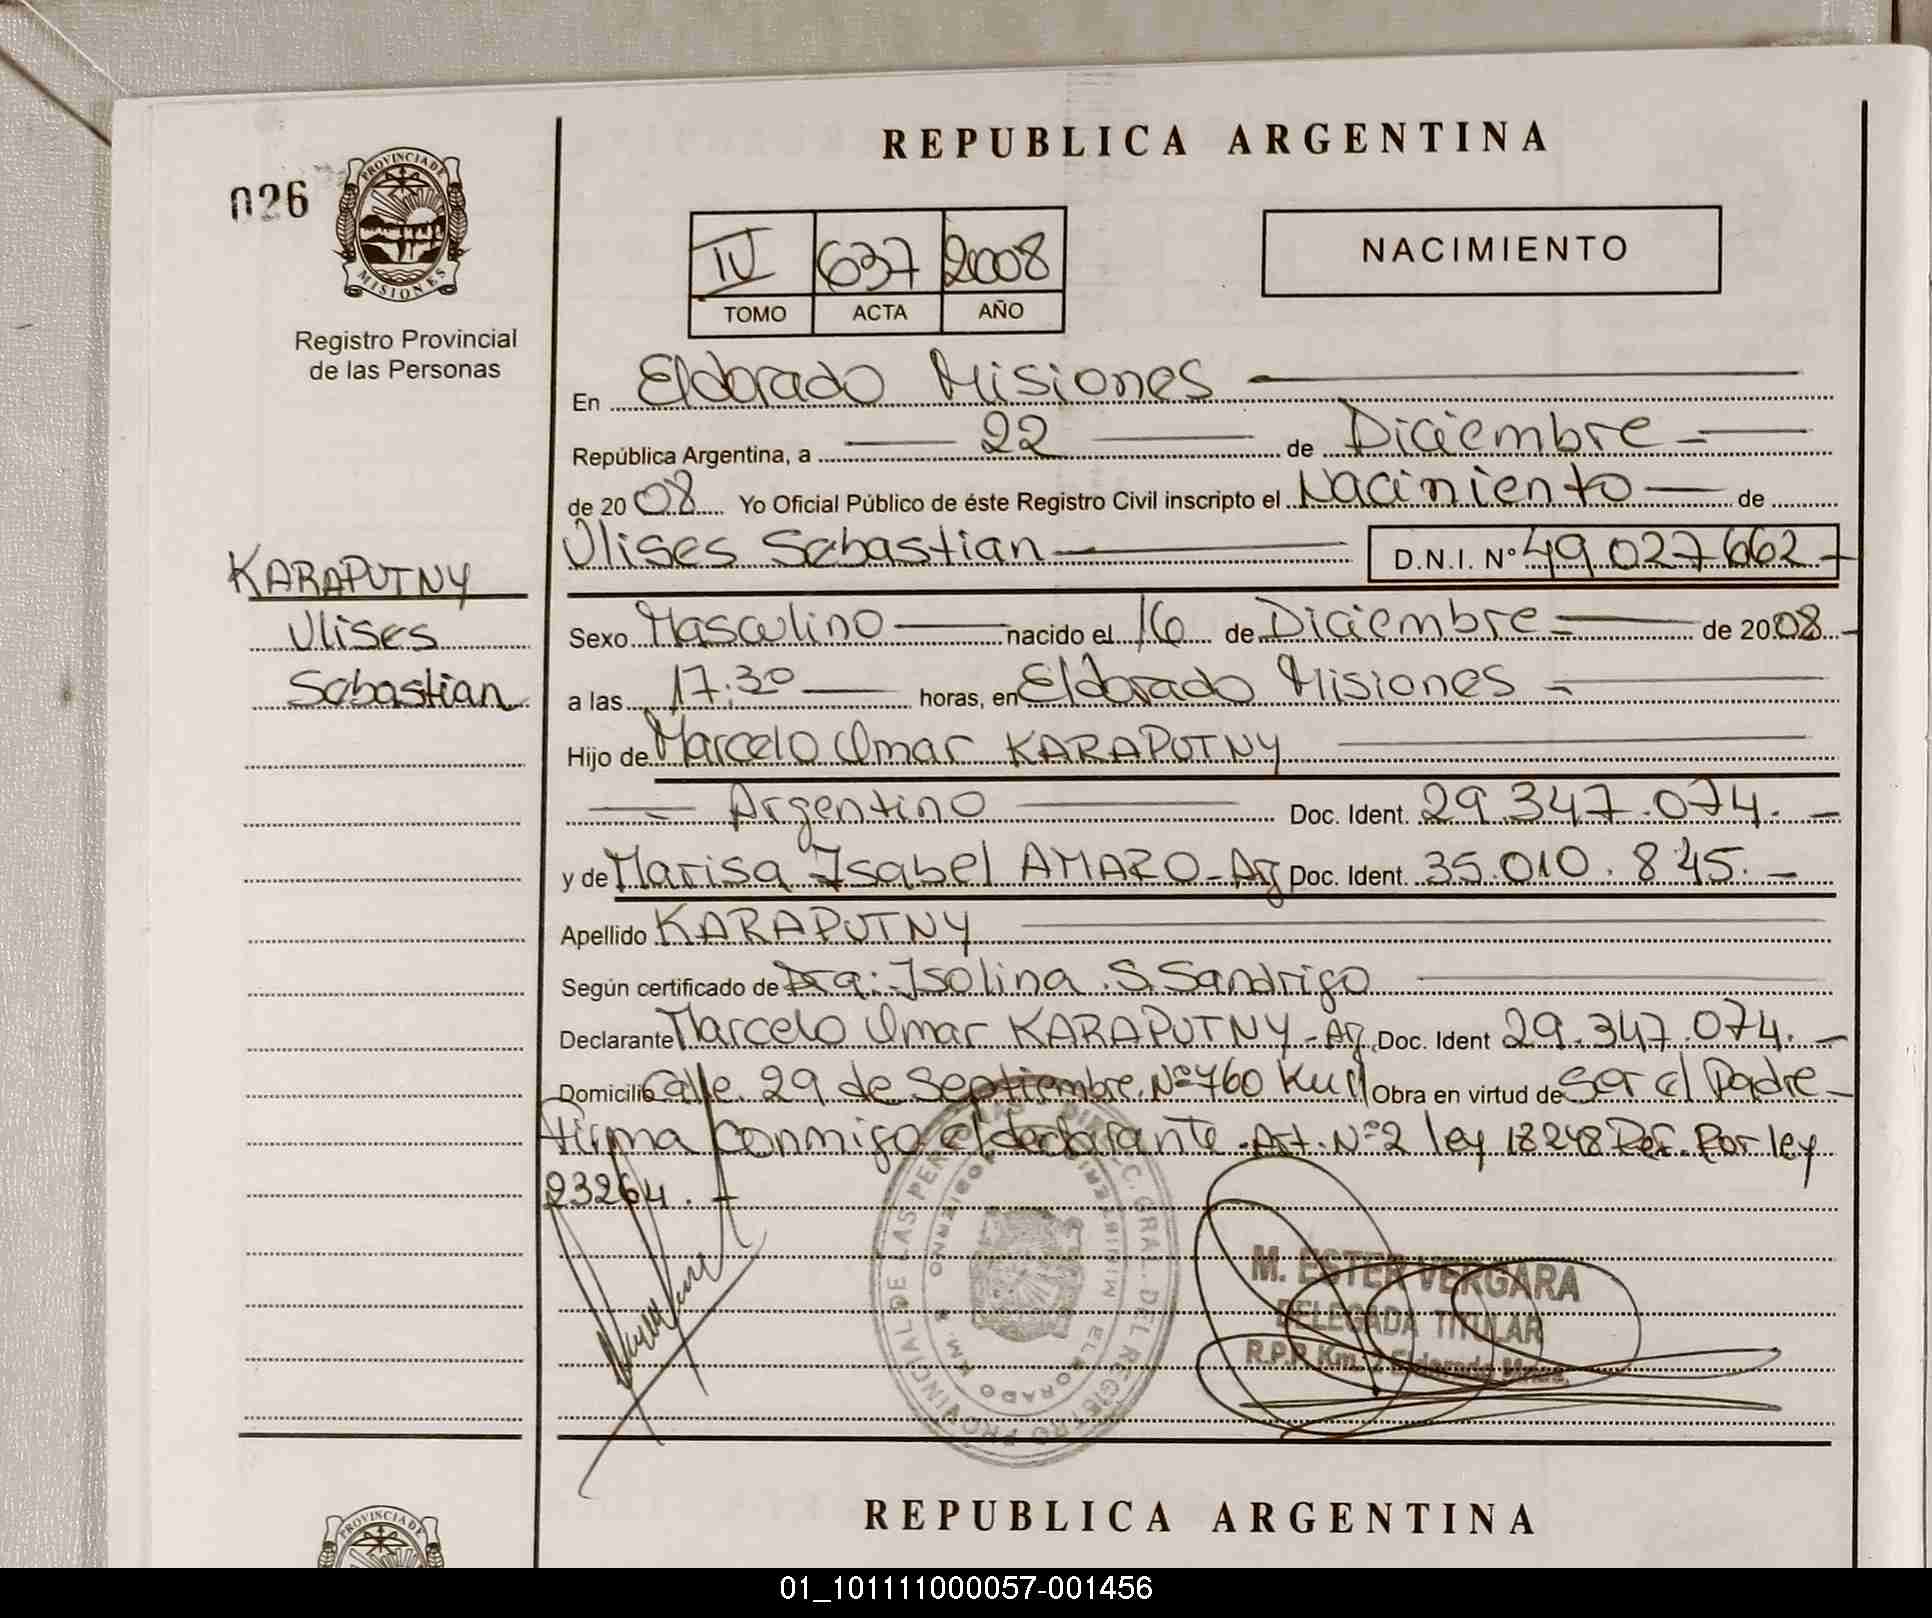 026
PROVINCIA DE
MISIONES
Registro Provincial
de las Personas
REPUBLICA ARGENTINA
IV 637 2008
TOMO ACTA AÑO
NACIMIENTO
En Eldorado Misiones
República Argentina, a 22 de Diciembre
de 2008 Yo Oficial Público de éste Registro Civil inscripto el Nacimiento de
Ulises Sebastian D.N.I. Nº 49027662
KARAPUTNY
Ulises
Sebastian
Sexo Masculino nacido el 16 de Diciembre de 2008
a las 17:30 horas, en Eldorado Misiones
Hijo de Marcelo Omar KARAPUTNY
Argentino Doc. Ident. 29.347.074.
y de Marisa Isabel AMARO - Arg Doc. Ident. 35.010.845.
Apellido KARAPUTNY
Según certificado de Dra: Isolina S. Sandrigo
Declarante Marcelo Omar KARAPUTNY - Arg. Doc. Ident 29.347.074.
Domicilio Calle 29 de Septiembre Nº 760 Km 11 Obra en virtud de Ser el Padre
Firma conmigo el declarante. Art. Nº2 ley 18248 Ref. Por ley
23264.
M. ESTER VERGARA
DELEGADA TITULAR
R.P.P. Km. 2 Eldorado Mnes.
REPUBLICA ARGENTINA
PROVINCIA DE
01_101111000057-001456